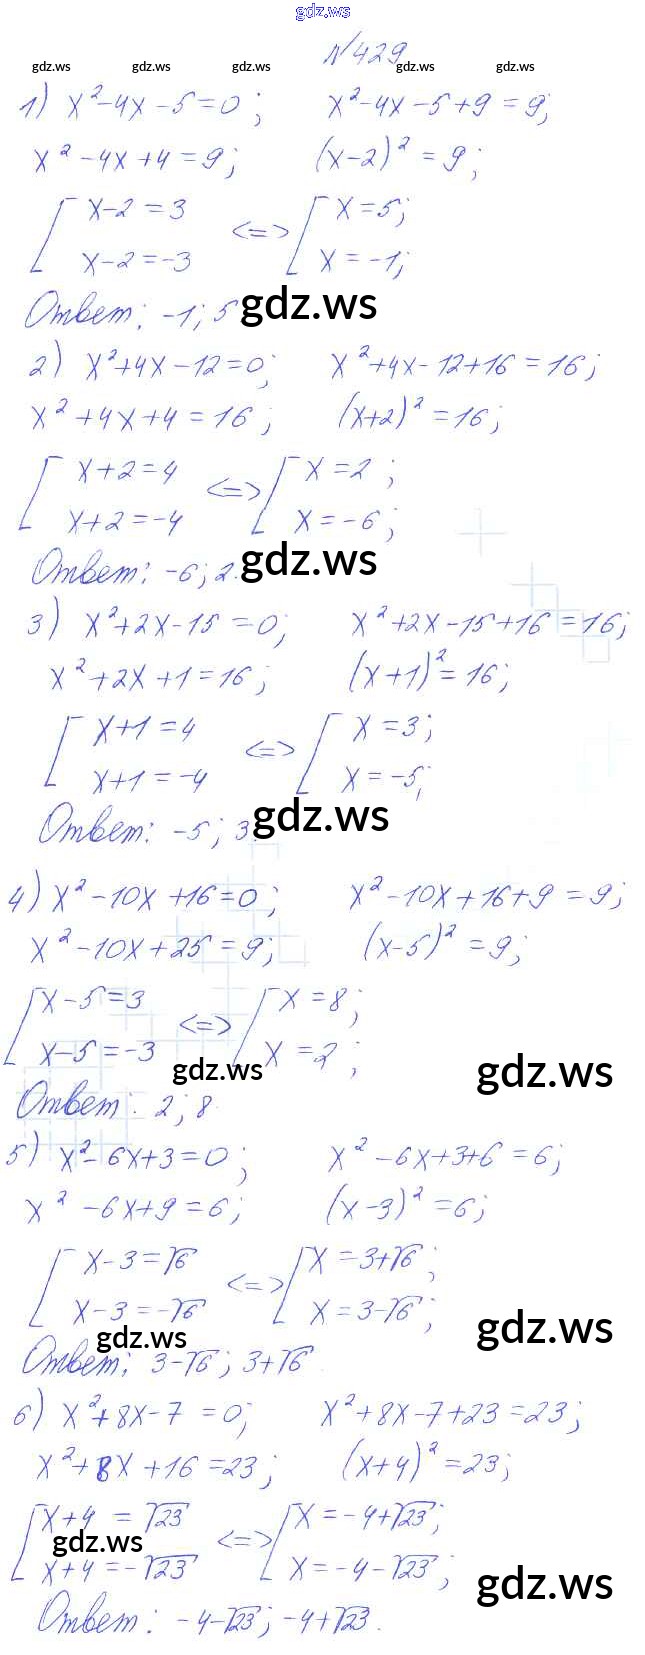 gdz.ws
№429
gdz.ws gdz.ws gdz.ws gdz.ws gdz.ws
1) x²-4x-5=0; x²-4x-5+9=9;
x²-4x+4=9; (x-2)²=9;
[ x-2=3 <=> [ x=5;
x-2=-3 x=-1;
Ответ: -1; 5 gdz.ws
2) x²+4x-12=0; x²+4x-12+16=16;
x²+4x+4=16; (x+2)²=16;
[ x+2=4 <=> [ x=2;
x+2=-4 x=-6;
Ответ: -6; 2. gdz.ws
3) x²+2x-15=0; x²+2x-15+16=16;
x²+2x+1=16; (x+1)²=16;
[ x+1=4 <=> [ x=3;
x+1=-4 x=-5;
Ответ: -5; 3. gdz.ws
4) x²-10x+16=0; x²-10x+16+9=9;
x²-10x+25=9; (x-5)²=9;
[ x-5=3 <=> [ x=8;
x-5=-3 x=2;
gdz.ws gdz.ws
Ответ: 2; 8.
5) x²-6x+3=0; x²-6x+3+6=6;
x²-6x+9=6; (x-3)²=6;
[ x-3=√6 <=> [ x=3+√6;
x-3=-√6 x=3-√6;
gdz.ws gdz.ws
Ответ: 3-√6; 3+√6.
6) x²+8x-7=0; x²+8x-7+23=23;
x²+8x+16=23; (x+4)²=23;
[ x+4=√23 <=> [ x=-4+√23;
gdz.ws
x+4=-√23 x=-4-√23;
gdz.ws
Ответ: -4-√23; -4+√23.